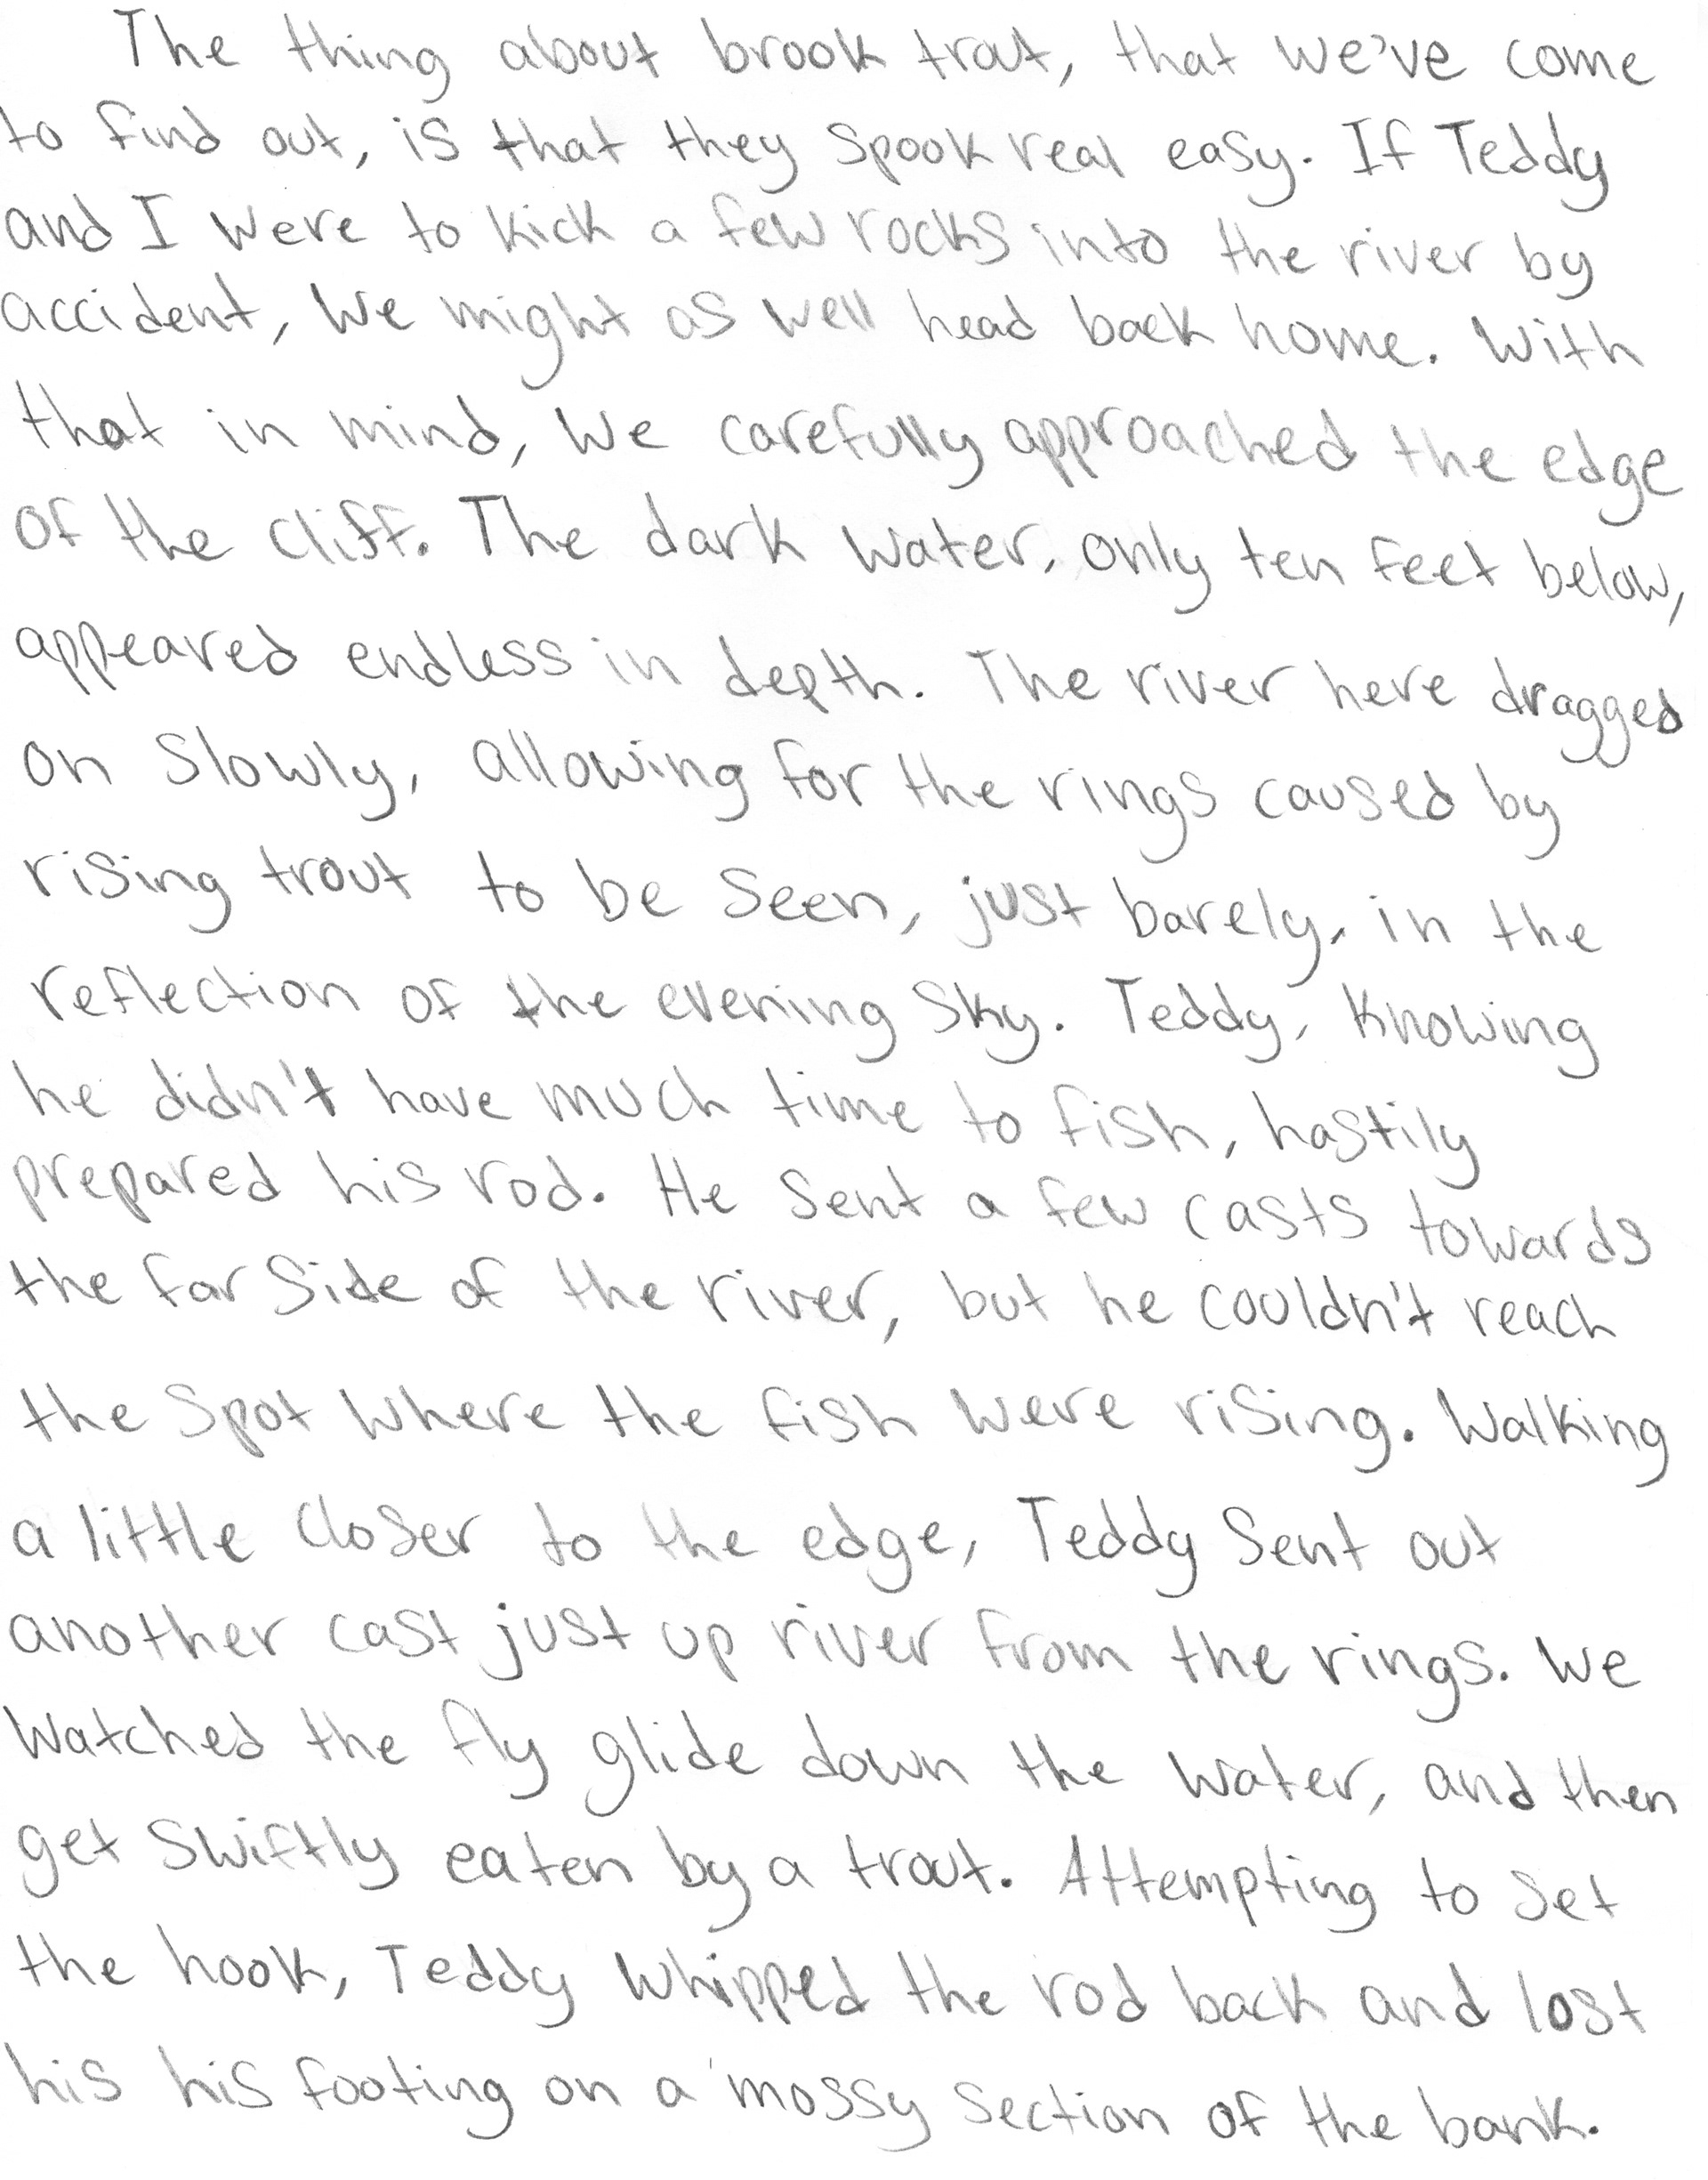 The thing about brook trout, that we've come
to find out, is that they spook real easy. If Teddy
and I were to kick a few rocks into the river by
accident, we might as well head back home. With
that in mind, we carefully approached the edge
of the cliff. The dark water, only ten feet below,
appeared endless in depth. The river here dragged
on slowly, allowing for the rings caused by
rising trout to be seen, just barely, in the
reflection of the evening sky. Teddy, knowing
he didn't have much time to fish, hastily
prepared his rod. He sent a few casts towards
the far side of the river, but he couldn't reach
the spot where the fish were rising. Walking
a little closer to the edge, Teddy sent out
another cast just up river from the rings. We
watched the fly glide down the water, and then
get swiftly eaten by a trout. Attempting to set
the hook, Teddy whipped the rod back and lost
his his footing on a mossy section of the bank.